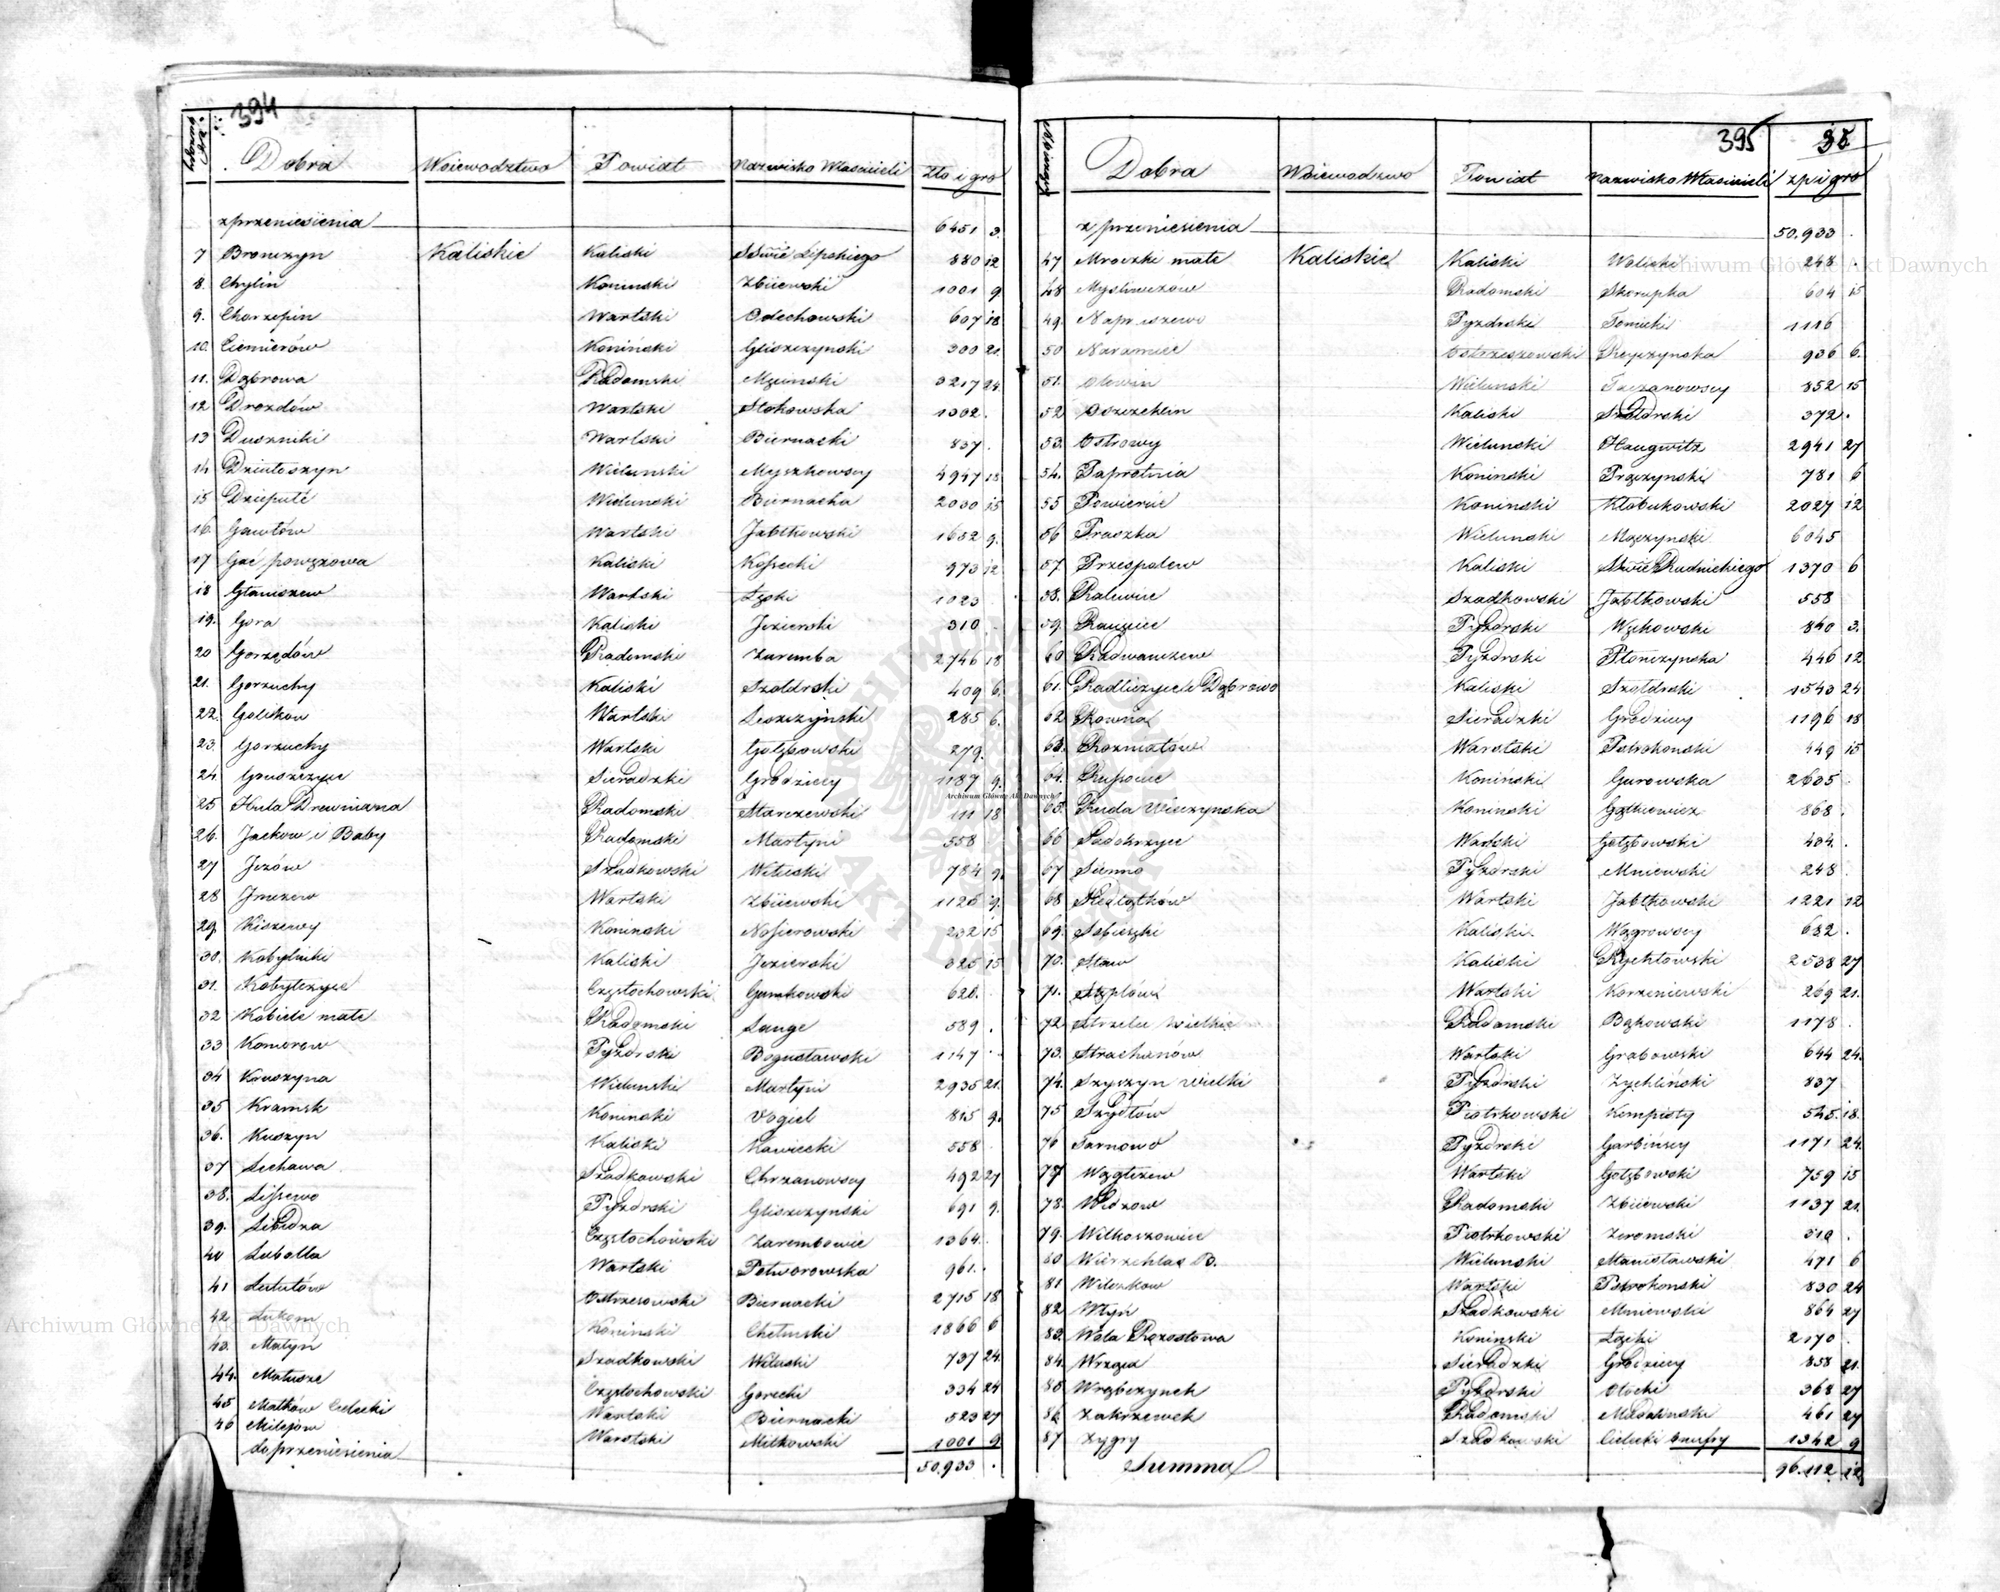 394
Dobra Woiewodztwo Powiat Nazwisko Właścicieli Zło i gro
z przeniesienia 6451 3.
7 Bronczyn Kaliskie Kaliski Sswie Lipskiego 880 12
8. Chylin Koninski Zbiiewski 1001 9.
9. Charzepin Wartski Odechowski 607 18
10. Ciemierów Koniński Gliszczynski 300 21.
11. Dąbrowa Radomski Męcinski 3217 24
12 Drozdów Wartski Stokowska 1302.
13 Duszniki Wartski Biernacki 837.
14 Działoszyn Wielunski Myszkowscy 4947 18
15 Dzieputé Wielunski Biernacka 2030 15
16. Gawłów Wartski Jabłkowski 1632 9.
17 Gać powęzowa Kaliski Kossecki 973 12
18 Glaniszew Wartski Łęski 1023
19. Gora Kaliski Jezierski 310.
20 Gorzędów Radomski Zaremba 2746 18
21. Gorzuchy Kaliski Szołdrski 409 6.
22. Golikow Wartski Leszczyński 285 6.
23. Gorzuchy Wartski Gołębowski 279.
24 Gruszczyce Sieradzki Grodziccy 1187 9.
25 Huta Drewniana Radomski Starczewski 111 18
26. Jackow i Baby Radomski Martyni 558
27 Jezów Szadkowski Wituski 784 9.
28 Jwezew Wartski Zbiiewski 1125 9.
29. Kiszewy Koninski Nosierowski 232 15
30. Kobylniki Kaliski Jezierski 325 15
31. Kobyłczyce Częstochowski Gumkowski 628.
32 Kobiele małe Radomski Lange 589.
33 Komorow Pyzdrski Bogusławski 1147
34 Kruszyna Wielunski Martyni 2935 21.
35 Kramsk Koninski Vogiel 815 9.
36. Kuszyn Kaliski Kawiecki 558
37 Lichawa Szadkowski Chrzanowscy 492 27
38. Lissewo Pyzdrski Gliszczynski 691 9.
39. Libidza Częstochowski Zarembowie 1364.
40 Lubolla Wartski Potworowska 961.
41 Lututów Ostrzeszowski Biernacki 2715 18
42. Lukom Koninski Chełmski 1866 6
43. Małyń Szadkowski Wituski 737 24
44. Matusze Częstochowski Gorecki 334 24
45 Małków Cielecki Wartski Biernacki 523 27
46 Milejow Wartski Miłkowski 1001 9
do przeniesienia 50.933.
395
Dobra Woiewodzwo Powiat Nazwisko Właścicieli zp i gro
z przeniesienia 50.933.
47 Mroczki małe Kaliskie Kaliski Wolicki 248.
48 Mysliwczow Radomski Skorupka 604 15
49. Pyzdrski Tomicki 1116
50 Naramice Ostrzeszowski 936 6.
51. Olewin Wielunski Taczanowscy 852 15
52 Oszczeklin Kaliski Szołdrski 372.
53. Ostrowy Wielunski Haugwitz 2941 27
54. Paprotnia Koninski 781 6
55 Powiercie Koninski Kłobukowski 2027 12
56 Praszka Wielunski Męczynski 6045
57. Przespolew Kaliski Sswie Rudnickiego 1370 6
58. Ralewice Szadkowski Jabłkowski 558
59. Pyzdrski Wękowski 840 3.
60 Radwanczew Pyzdrski Płonczynska 446 12
61. Radliczyce i Dąbrowo Kaliski Szołdrski 1543 24
62 Rowna Sieradzki Grodziccy 1196 18
63. Rozniatów Wartski Pstrokonski 449 15
64. Rusocice Koniński Gurowska 2605
65. Ruda Wieczynska Koninski 868.
66 Sadokrzyce Wartski Gołębowski 434.
67 Sienno Pyzdrski Mniewski 248
68 Siedlątków Wartski Jabłkowski 1221 12
69. Sobieszki Kaliski Węgrowscy 682.
70. Staw Kaliski Rychłowski 2538 27
71. Stęplów Wartski Korzeniewski 269 21.
72. Strzelce Wielkie Radomski Bąkowski 1178
73. Strachanów Wartski Grabowski 644 24.
74. Szyszyn wielki Pyzdrski Zychliński 837
75 Szydłów Piotrkowski Kempisty 545. 18.
76 Tarnowo Pyzdrski Garbińscy 1171 24.
77 Węglczew Wartski Gołębowski 759 15
78. Widzow Radomski Zbiiewski 1137 21.
79. Wilkoszowice Piotrkowski Zeromski 310.
80 Wierzchlas B. Wielunski Stanisławski 471 6
81 Wilczkow Wartski Pstrokonski 830 24
82 Włyń Szadkowski Mniewski 864 27
83. Wola Rozostowa Koninski Łącki 2170
84. Wrząca Sieradzki Grodziccy 858 21.
85 Wrąbczynek Pyzdrski Otocki 368 27
86 Zakrzewek Radomski Madalinski 461 27
87 Zygry Szadkowski Cielecki Onufry 1342 9
Summa 96.112 12
Archiwum Główne Akt Dawnych
Archiwum Główne Akt Dawnych
Archiwum Główne Akt Dawnych